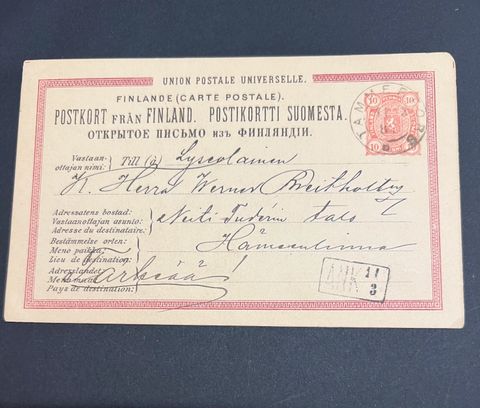 UNION POSTALE UNIVERSELLE.
FINLANDE (CARTE POSTALE).
POSTKORT FRÅN FINLAND. POSTIKORTTI SUOMESTA.
ОТКРЫТОЕ ПИСЬМО изъ ФИНЛЯНДІИ.
10 10
10 10
TAMMERFORS
Vastaan-
ottajan nimi: Till (à) Lyseolainen
K. Herra Werner Breitholtz
Adressatens bostad:
Vastaanottajan asunto: Neiti Tudérin talo
Adresse du destinataire:
Bestämmelse orten:
Meno paikka: Hämeenlinna
Lieu de destination:
Adresslandet:
Menomaa:
Pays de destination:
ANK 11
3